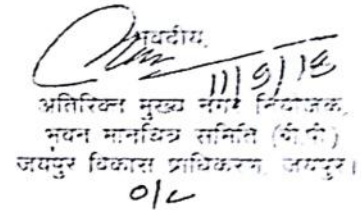 भवदीय,
11/9/18
अतिरिक्त मुख्य नगर नियोजक,
भवन मानचित्र समिति (बी.पी.)
जयपुर विकास प्राधिकरण, जयपुर।
O/C